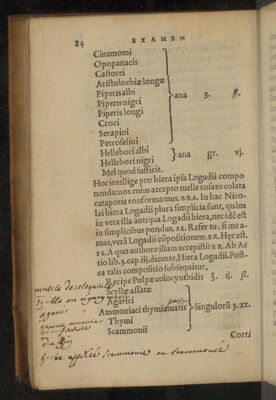 84 EXAMEN
Cinamomi
Opopanacis
Castorei
Aristolochiæ longæ
Piperis albi
Piperis nigri
Piperis longi
Croci
Serapini
Petroselini
ana ʒ. ß.
Hellebori albi
Hellebori nigri
ana gr. vj.
Mel quod sufficit.
Hoc intellige pro hiera ipsa Logadii compo
nenda: nos enim accepto melle rosato colata
catapotia conformamus. BRA. In hac Nico-
lai hiera Logadii plura simplicia sunt, quàm
in vera illa antiqua Logadii hiera, nec idē est
in simplicibus pondus. SE. Refer tu, si me a-
mas, verā Logadii cōpositionem. BR. Hęc est.
SE. A quo authore illam accepisti? BR. Ab Aë
tio lib. 3. cap. iij. dicente, Hiera Logadii. Post-
ea talis compositio subsequitur,
Recipe Pulpæ colocynthidis ʒ. ij. ß.
Scyllæ assatæ
Agarici
Ammoniaci thymiamatis
Thymi
Scammonii
Singulorū ʒ. xx.
Corti
agaric